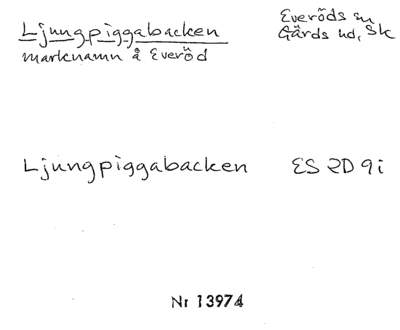 Ljungpiggabacken
marknamn å Everöd
Everöds sn
Gärds hd, Sk
Ljungpiggabacken ES 2D 9i
Nr 13974